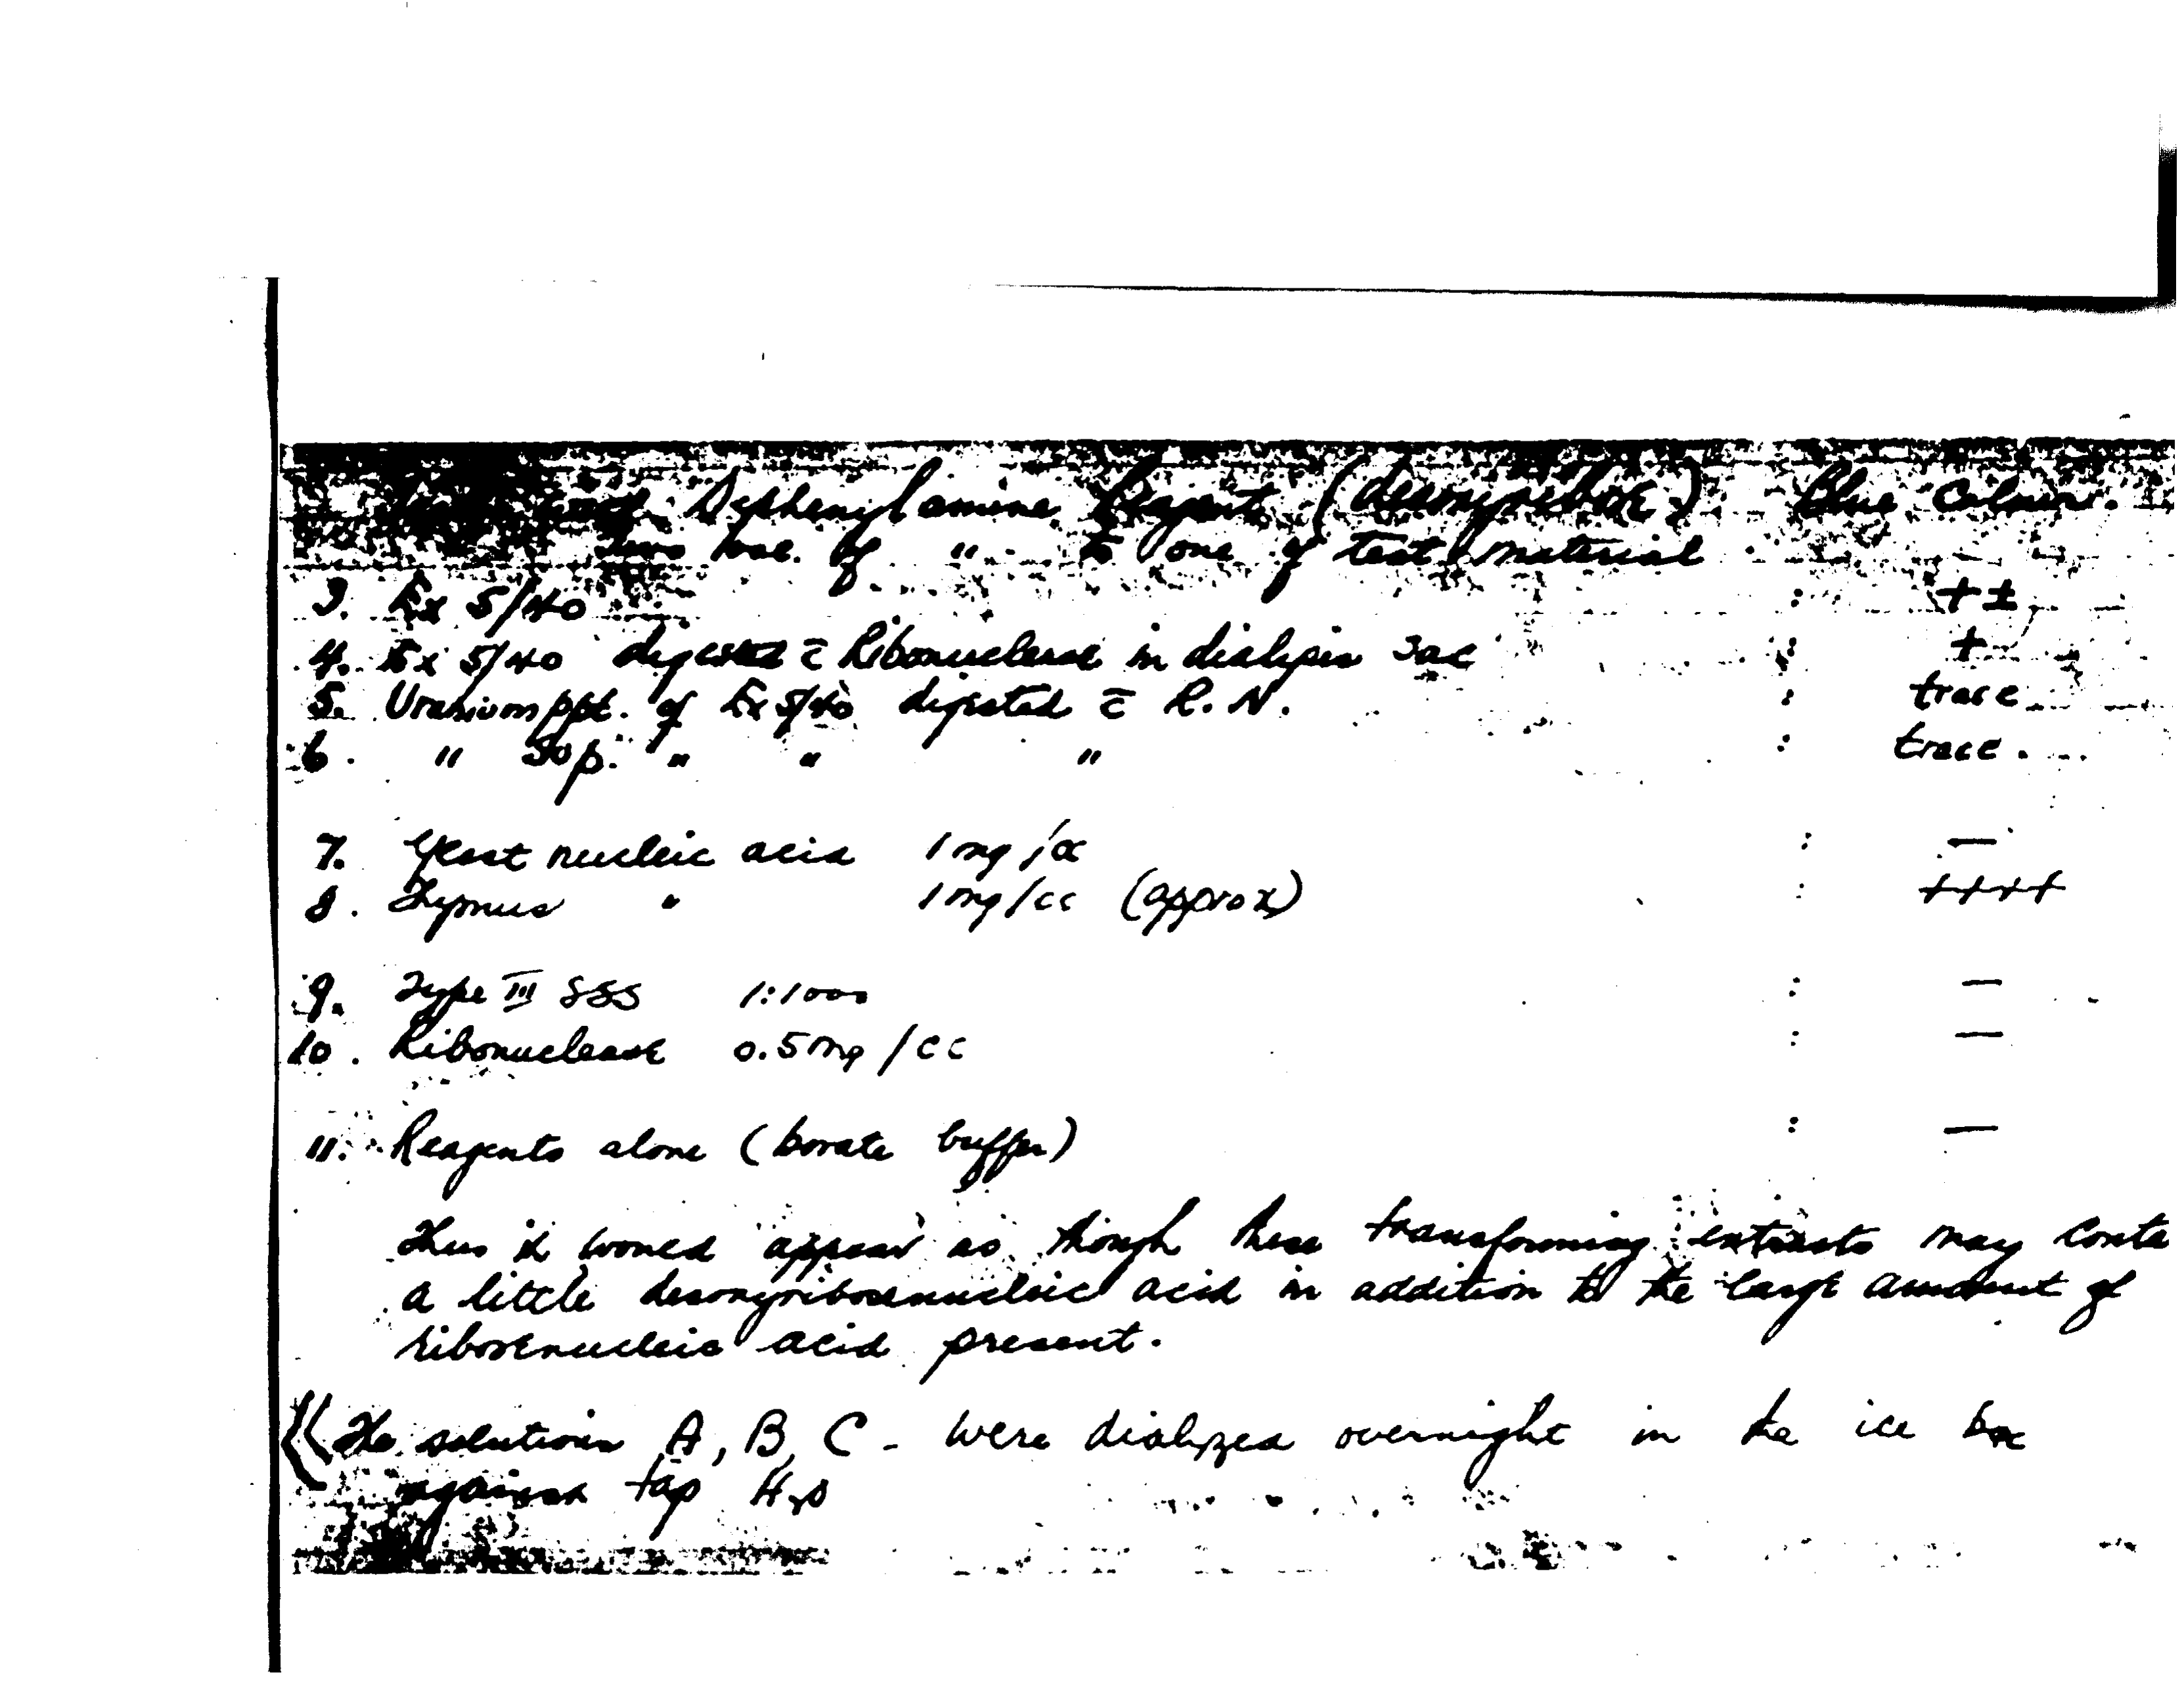 Diphenylamine Reagent (desoxyribose) Blue Colour.
two vol. of " to one of test material
3. Ex 5/40 : +±
4. Ex 5/40 digested c̄ Ribonuclease in dialysis sac : +
5. Uranium ppt. of Ex 5/40 digested c̄ R.N. : trace
6. " Sup. " " " : trace.
7. Yeast nucleic acid 1 mg/cc : —
8. Thymus " 1mg/cc (approx) : ++++
9. Type III SSS 1:1000 : —
10. Ribonuclease 0.5mg/cc : —
11. Reagents alone (borate buffer) : —
Thus it would appear as though these transforming extracts may conta
a little desoxyribosenucleic acid in addition to the large amount of
ribosenucleic acid present.
The solutions A, B, C - were dialyzed overnight in the ice box
against tap H2O